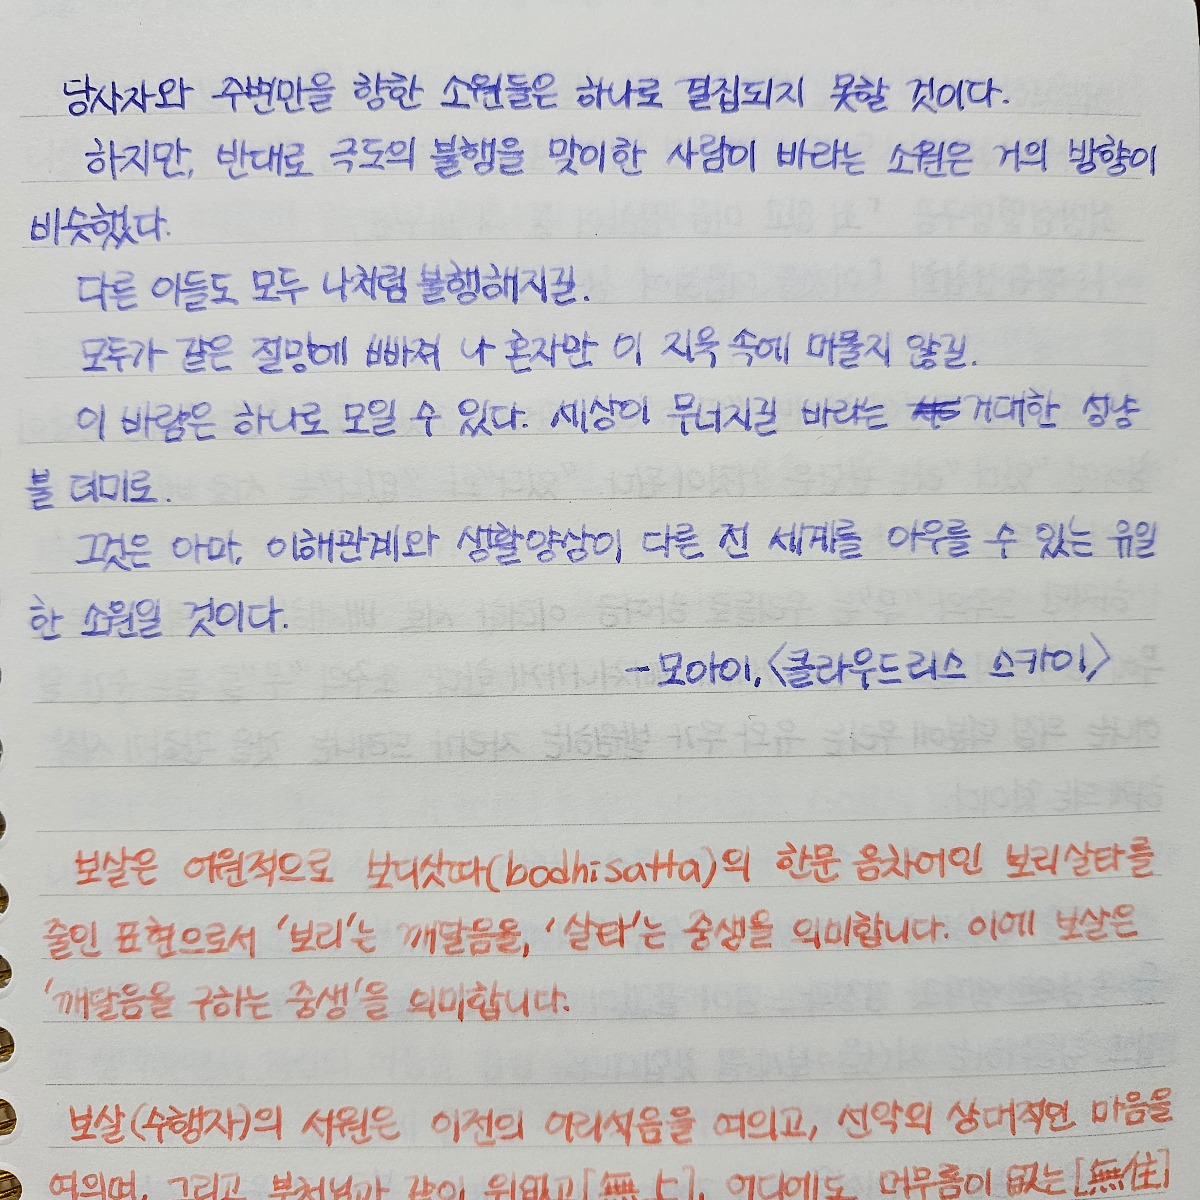 당사자와 주변만을 향한 소원들은 하나로 결집되지 못할 것이다.
하지만, 반대로 극도의 불행을 맞이한 사람이 바라는 소원은 거의 방향이
비슷했다.
다른 이들도 모두 나처럼 불행해지길.
모두가 같은 절망에 빠져 나 혼자만 이 지옥 속에 머물지 않길.
이 바람은 하나로 모일 수 있다. 세상이 무너지길 바라는 거대한 성냥
불 더미로.
그것은 아마, 이해관계와 생활양상이 다른 전 세계를 아우를 수 있는 유일
한 소원일 것이다.
-모아이,〈클라우드리스 스카이〉
보살은 어원적으로 보디삿따(bodhisatta)의 한문 음차어인 보리살타를
줄인 표현으로서 '보리'는 깨달음을, '살타'는 중생을 의미합니다. 이에 보살은
'깨달음을 구하는 중생'을 의미합니다.
보살(수행자)의 서원은 이전의 어리석음을 여의고, 선악의 상대적인 마음을
여의며, 그리고 부처님과 같이 위없고[無上], 어디에도 머무름이 없는[無住]